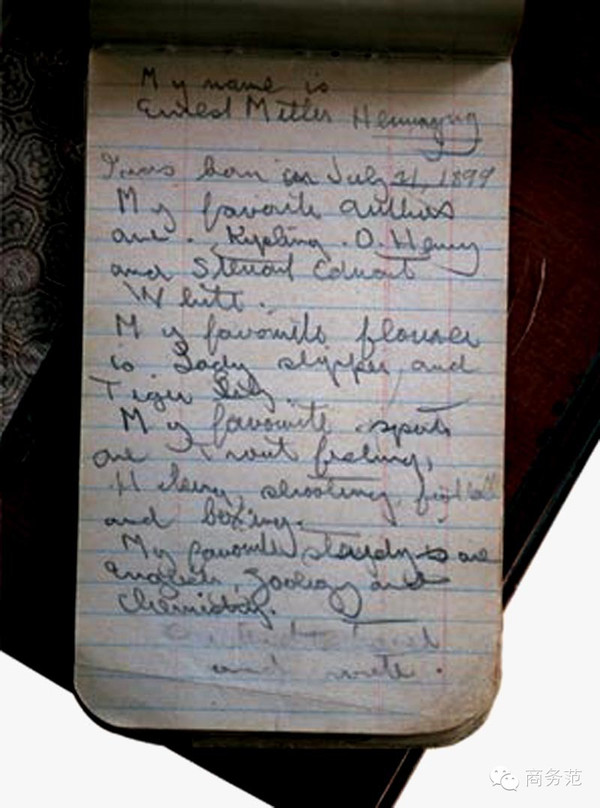 My name is
Ernest Miller Hemingway
I was born on July 21, 1899
My favorite authors
are. Kipling. O. Henry
and Steuart Edward
White.
My favorite flower
is Lady slipper and
Tiger Lily.
My favorite sports
are Trout fishing,
Hiking, shooting, football
and boxing.
My favorite studys are
English, Zoology and
Chemistry.
I intend to travel
and write.
商务范